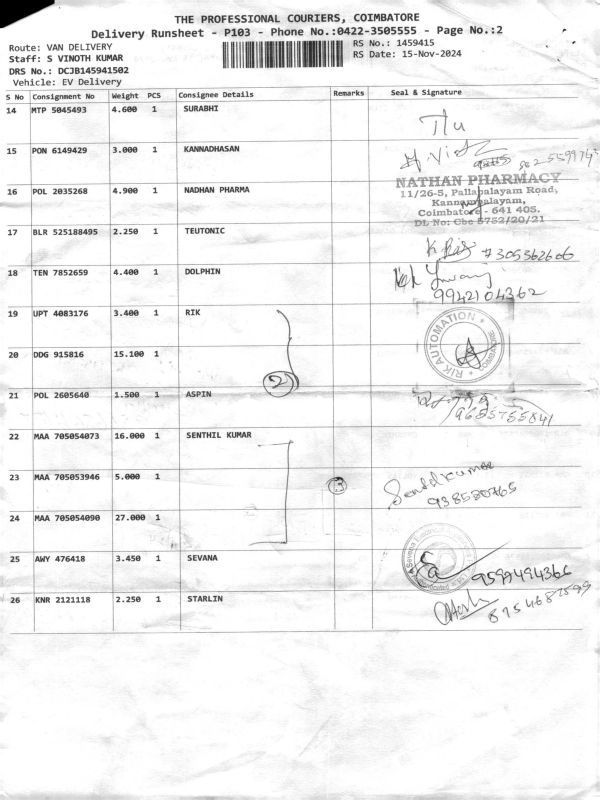 THE PROFESSIONAL COURIERS, COIMBATORE
Delivery Runsheet - P103 - Phone No.:0422-3505555 - Page No.:2
Route: VAN DELIVERY
RS No.: 1459415
Staff: S VINOTH KUMAR
RS Date: 15-Nov-2024
DRS No.: DCJB145941502
Vehicle: EV Delivery
S No Consignment No Weight PCS Consignee Details Remarks Seal & Signature
14 MTP 5045493 4.600 1 SURABHI
15 PON 6149429 3.000 1 KANNADHASAN
16 POL 2035268 4.900 1 NADHAN PHARMA
NATHAN PHARMACY
11/26-5, Pallapalayam Road,
Kannampalayam,
Coimbatore - 641 405.
DL No: Cbe 5752/20/21
17 BLR 525188495 2.250 1 TEUTONIC
18 TEN 7852659 4.400 1 DOLPHIN
9942104362
19 UPT 4083176 3.400 1 RIK
RIK AUTOMATION
20 DDG 915816 15.100 1
2
21 POL 2605640 1.500 1 ASPIN
9655755841
22 MAA 705054073 16.000 1 SENTHIL KUMAR
23 MAA 705053946 5.000 1
3
Senthil kumar
24 MAA 705054090 27.000 1
25 AWY 476418 3.450 1 SEVANA
26 KNR 2121118 2.250 1 STARLIN